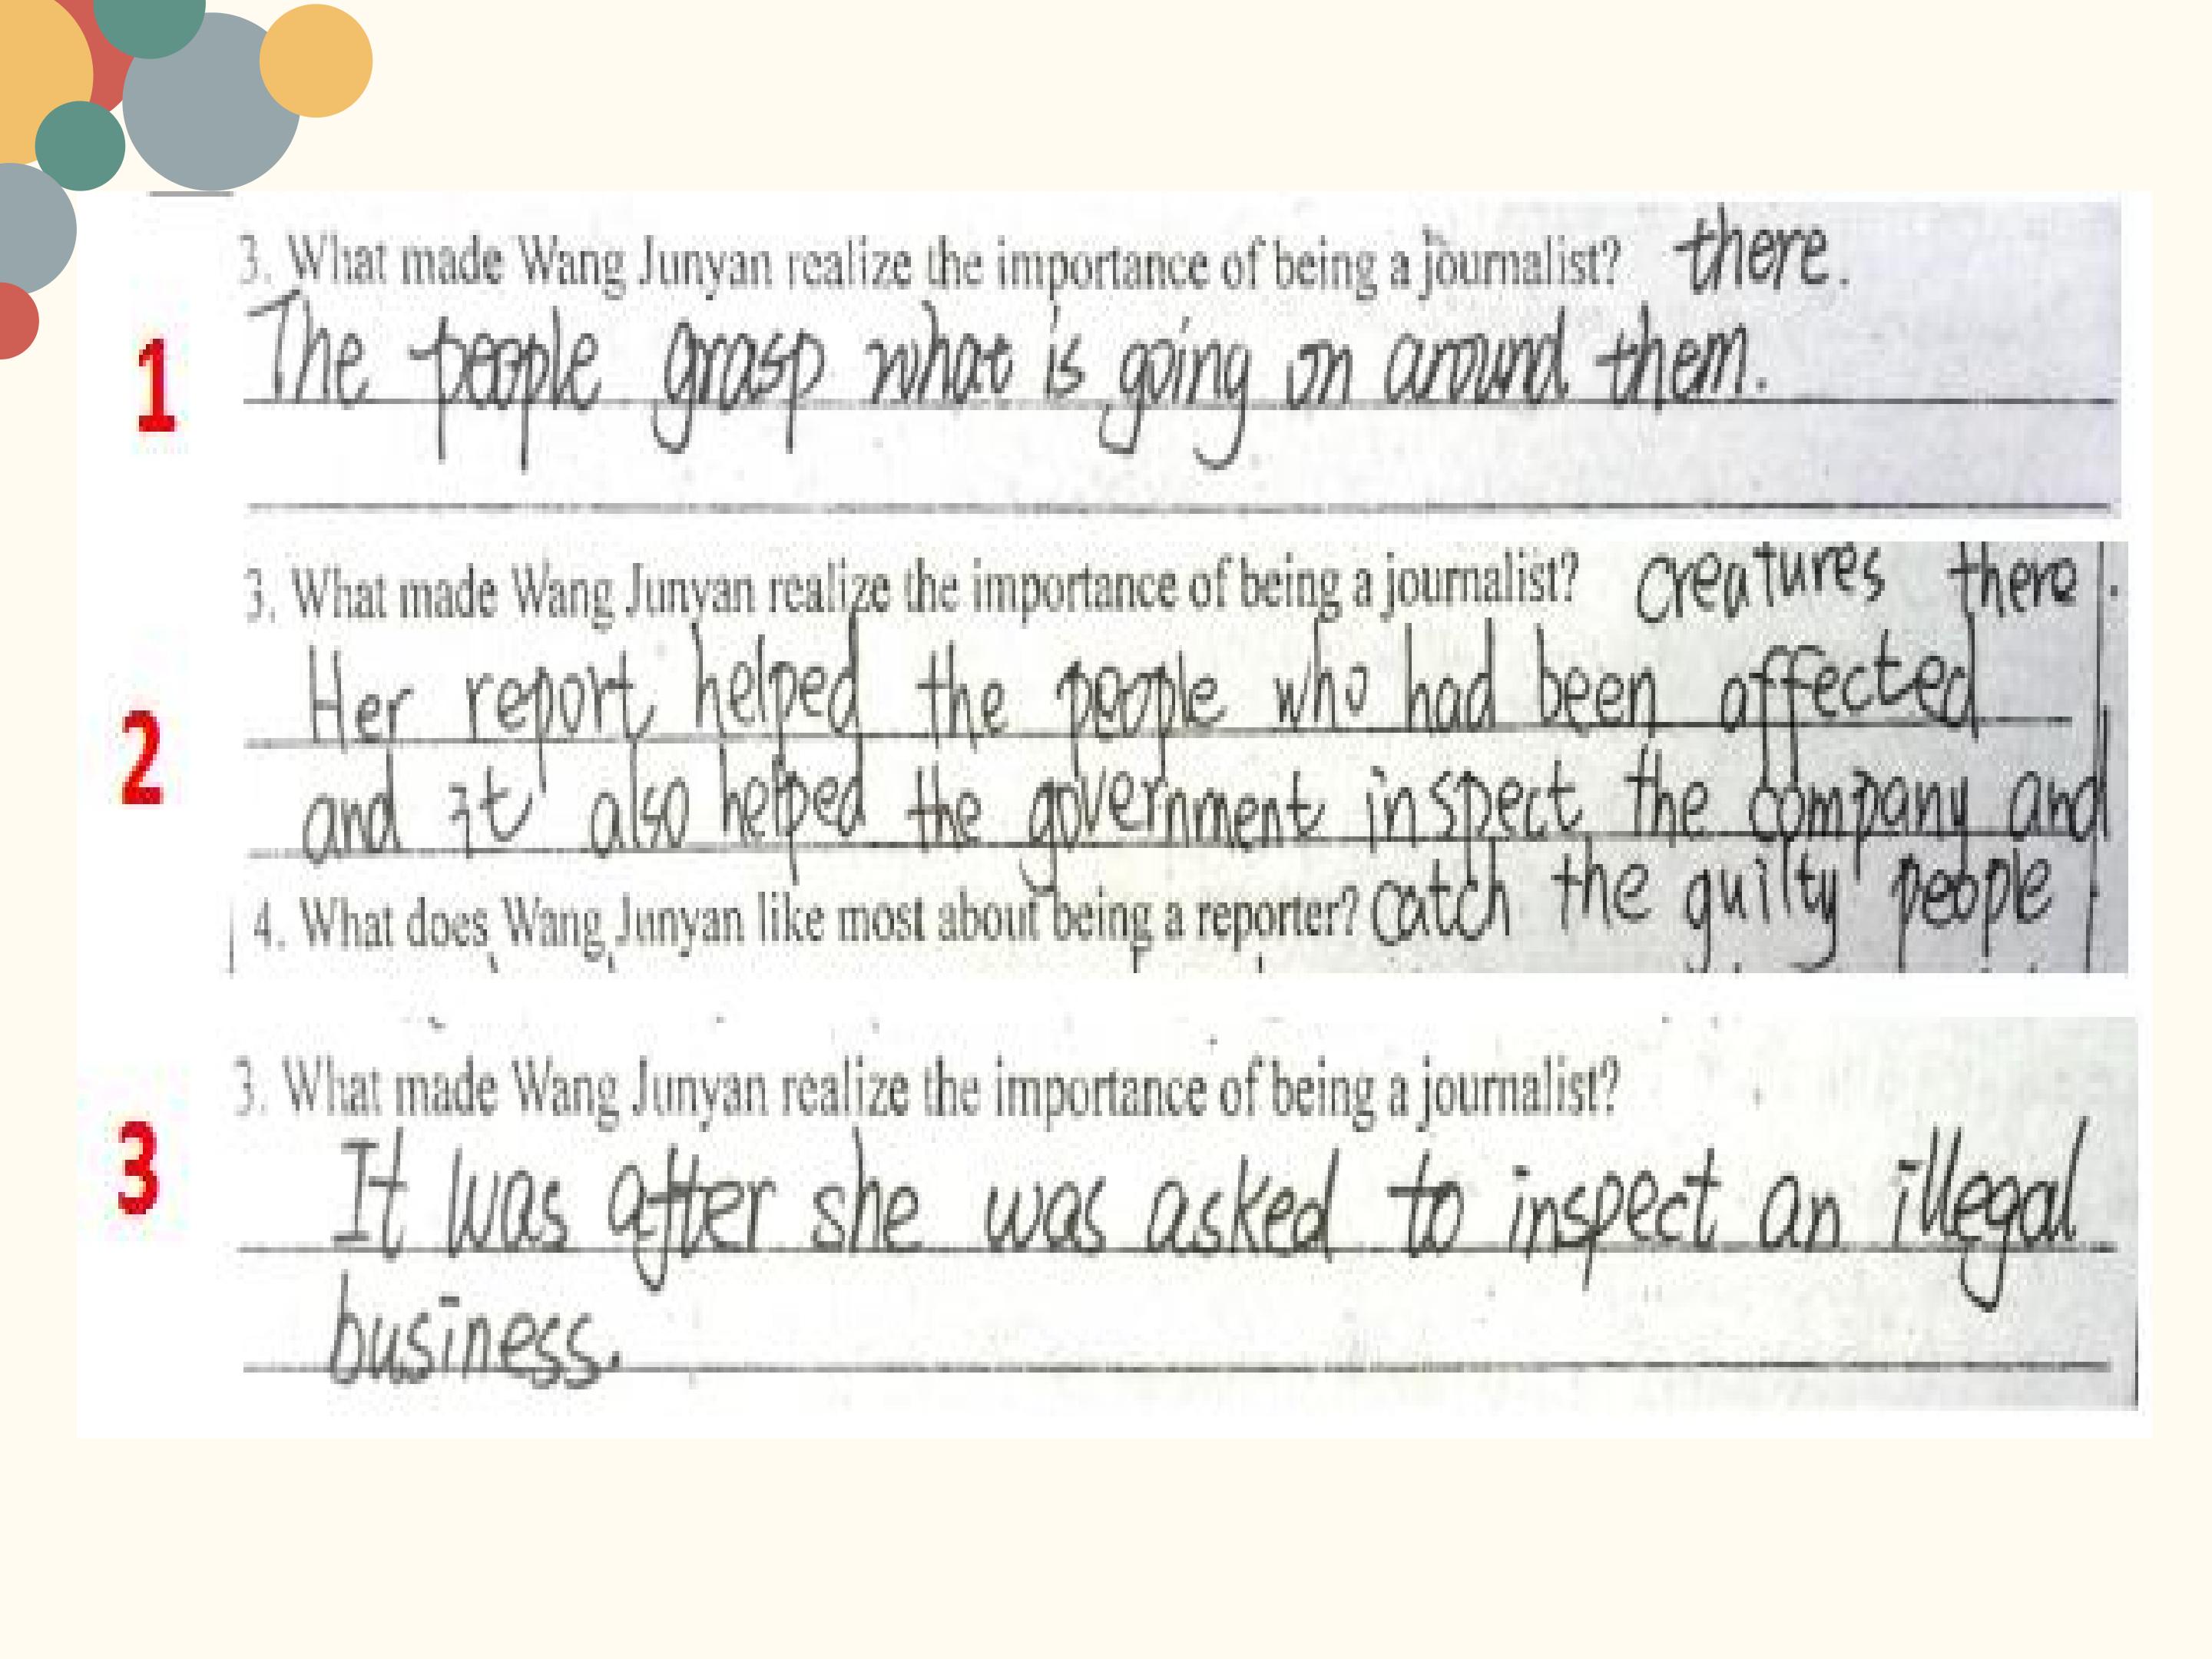 3. What made Wang Junyan realize the importance of being a journalist? there.
1
The people grasp what is going on around them.
3. What made Wang Junyan realize the importance of being a journalist? creatures there.
2
Her report helped the people who had been affected
and it also helped the government inspect the company and
4. What does Wang Junyan like most about being a reporter? catch the guilty people.
3. What made Wang Junyan realize the importance of being a journalist?
3
It was after she was asked to inspect an illegal
business.